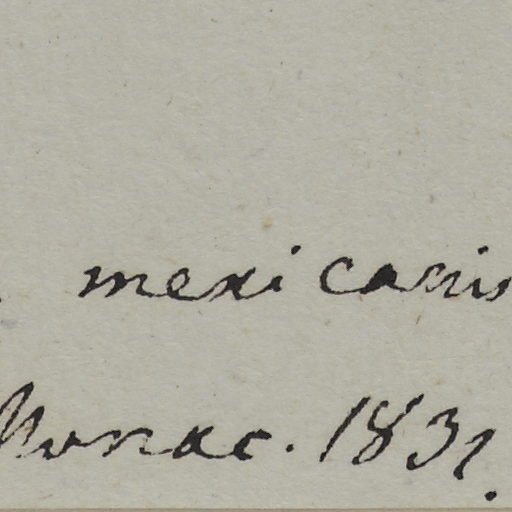 mexicanis
Monac. 1831.